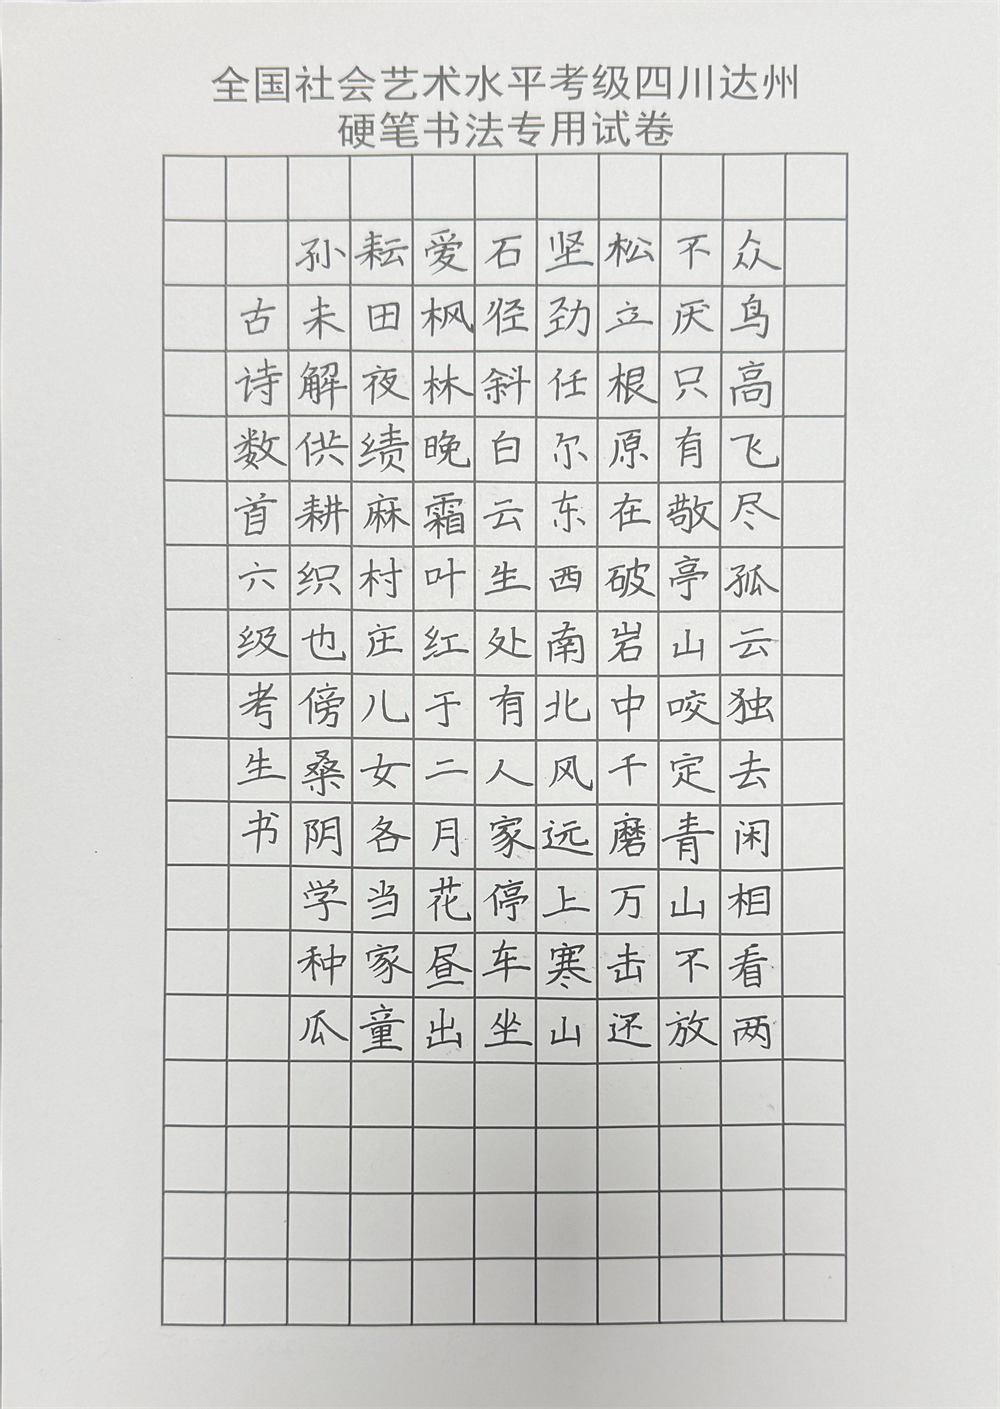 全国社会艺术水平考级四川达州
硬笔书法专用试卷
众鸟高飞尽孤云独去闲相看两
不厌只有敬亭山咬定青山不放
松立根原在破岩中千磨万击还
坚劲任尔东西南北风远上寒山
石径斜白云生处有人家停车坐
爱枫林晚霜叶红于二月花昼出
耘田夜绩麻村庄儿女各当家童
孙未解供耕织也傍桑阴学种瓜
古诗数首六级考生书